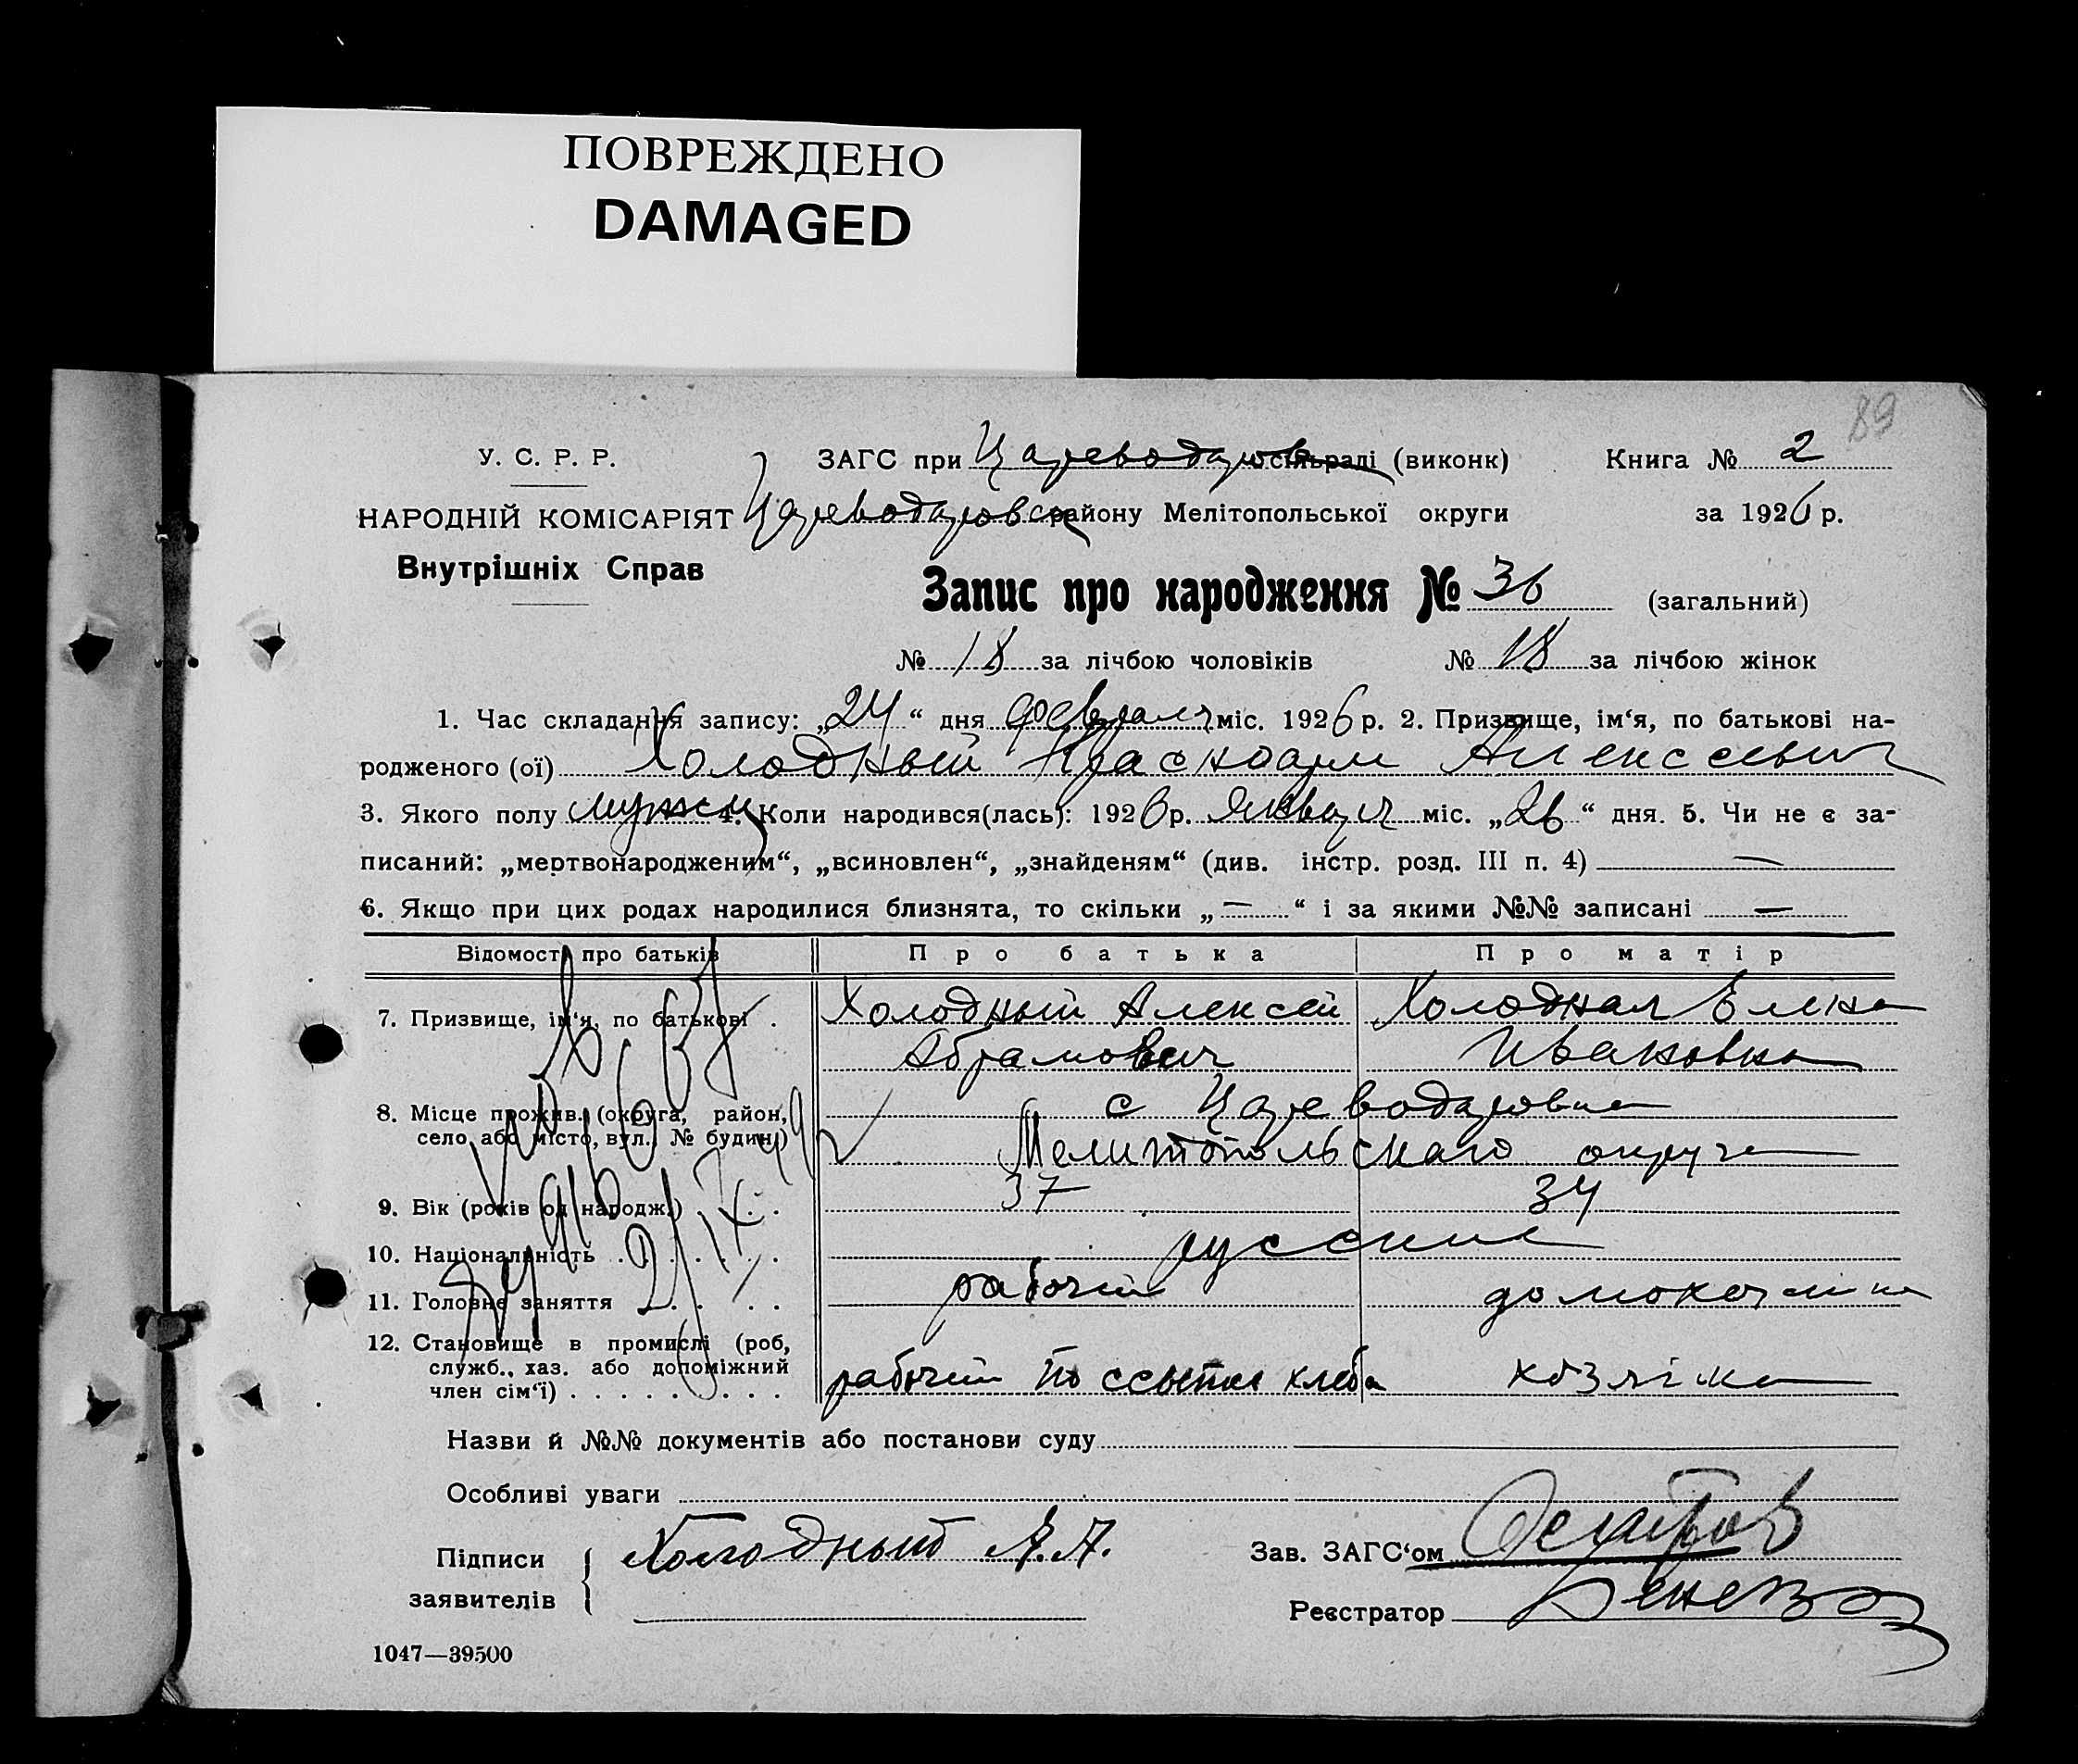 ПОВРЕЖДЕНО
DAMAGED
89
У. С. Р. Р.
ЗАГС при Цареводаровс сільраді (виконк)
Книга № 2
НАРОДНІЙ КОМІСАРІЯТ
Цареводаровск району Мелітопольської округи
за 1926 р.
Внутрішніх Справ
Запис про народження № 36 (загальний)
№ 18 за лічбою чоловіків № 18 за лічбою жінок
1. Час складання запису: „24“ дня февраля міс. 1926 р. 2. Призвище, ім‘я, по батькові на-
родженого (ої) Холодный Красноарм Алексеевич
3. Якого полу мужск 4. Коли народився(лась): 1926 р. января міс. „26“ дня. 5. Чи не є за-
писаний: „мертвонародженим“, „всиновлен“, „знайденям“ (див. інстр. розд. III п. 4) —
6. Якщо при цих родах народилися близнята, то скільки „—“ і за якими №№ записані —
Відомості про батьків Про батька Про матір
7. Призвище, ім‘я, по батькові . Холодный Алексей Холодная Елена
Абрамович Ивановна
8. Місце прожив. (округа, район, с Цареводаровка
село або місто, вул., № будин.) Мелитопольскаго округа
9. Вік (років од народж.) . . . 37 34
10. Національність . . . . . . русские
11. Головне заняття . . . . рабочий
12. Становище в промислі (роб,
служб., хаз. або допоміжний
член сім‘ї) . . . . . . . . . рабочий по ссыпке хлеба
Назви й №№ документів або постанови суду
Особливі уваги
Підписи Холодный А.А.
заявителів
Зав. ЗАГС‘ом
Реєстратор
1047—39500